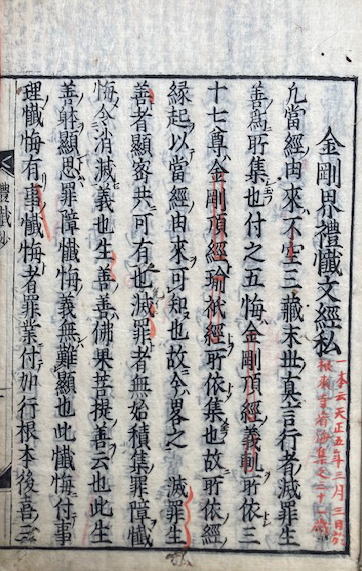 金剛界禮懺文經私
一本云天正五年三月三日於
根來寺者誨集之二十一歲
凡當經由來不空三藏末世真言行者滅罪生
善爲所集也付之五悔金剛頂經義軌所依三
十七尊金剛頂經瑜祇經所依集也故所依經
緣起以當經由來可知也故今畧之 滅罪生
善者顯密共可有也滅罪者無始積集罪障懺
悔令消滅義也生善善佛果菩提善云也此生
善躰顯思罪障懺悔義無難顯也此懺悔付事
理懺悔有事懺悔者罪業付加行根本後吾三
禮懺鈔